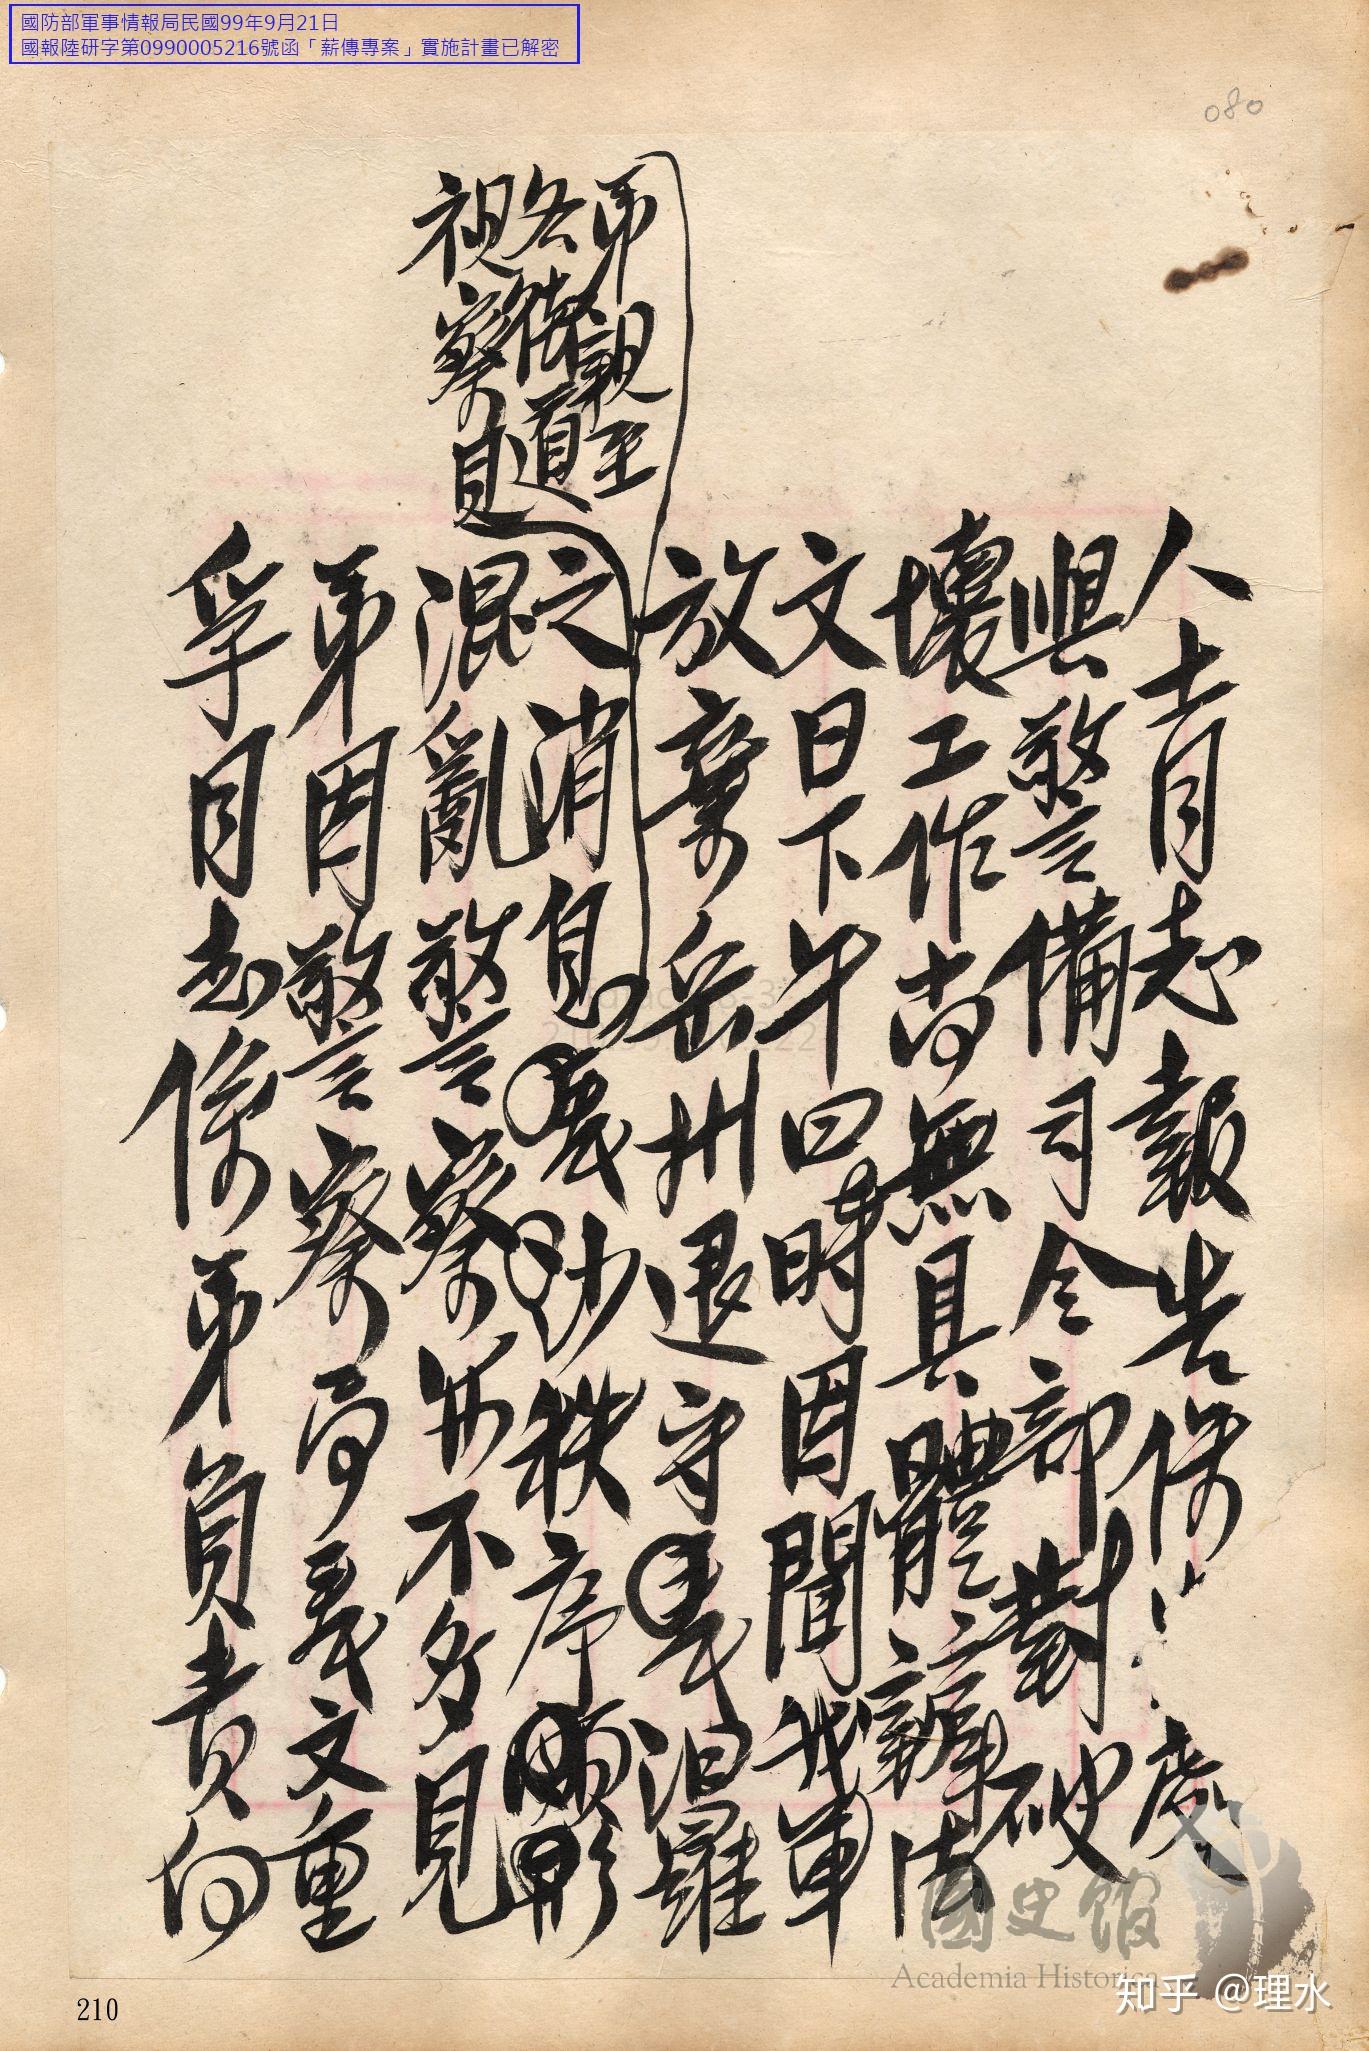 國防部軍事情報局民國99年9月21日
國報陸研字第0990005216號函「薪傳專案」實施計畫已解密
080
人士員
報告
與警備司令部對破
壞工作尚無具體辦法
文日下午四時因聞我軍
放棄岳州退守汨羅
弟親至
各街道
視察見
之消息長沙秩序頗形
混亂警察亦不多見
弟因警察局長文重
孚目去係弟負責向
國史館
Academia Historica
知乎 @理水
210